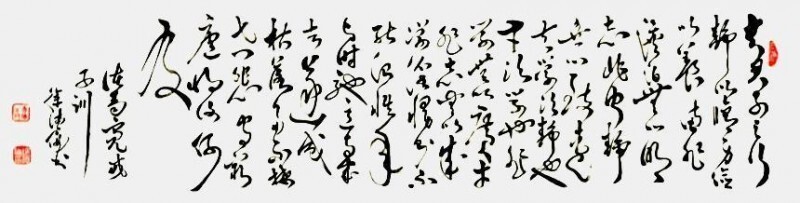 夫君子之行
静以修身俭
以养德非
淡泊无以明
志非宁静
无以致远
夫学须静也
才须学也非
学无以广才
非志无以成
慢则不
能治性年
与时驰意
去遂成
枯落多不接
世悲守穷
庐将复何
及
诸葛亮诫
子训
书